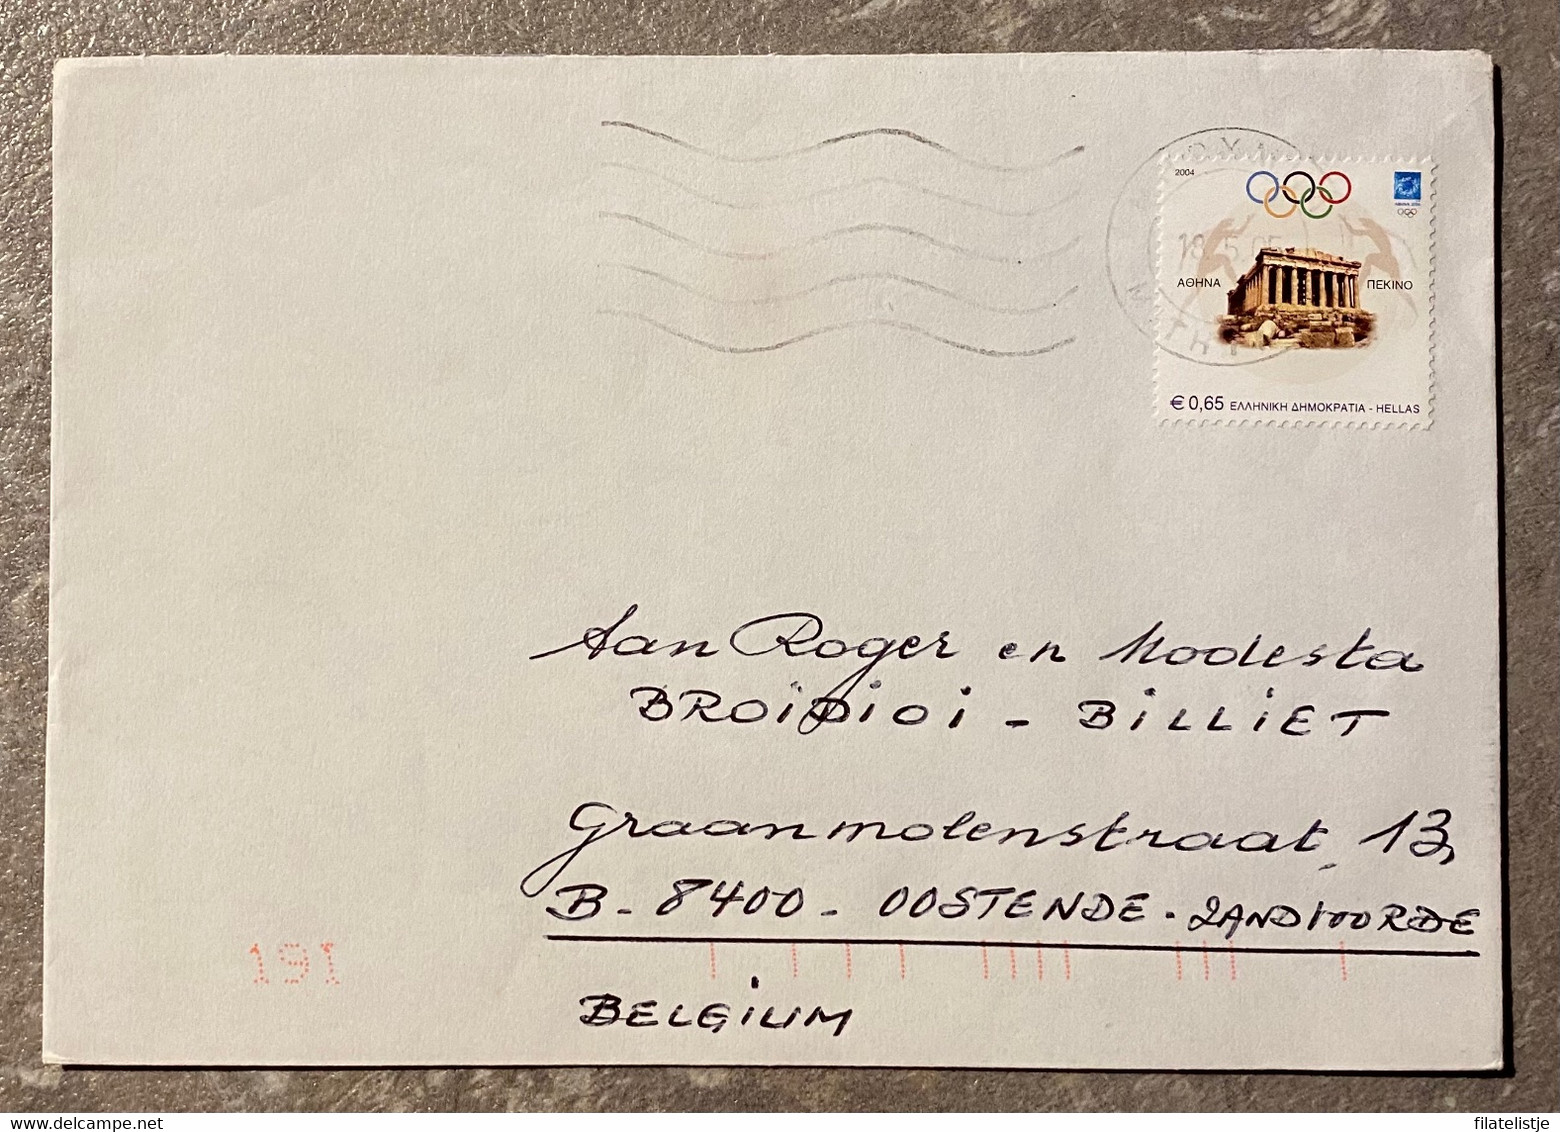 2004
ΑΘΗΝΑ
ΠΕΚΙΝΟ
€0,65 ΕΛΛΗΝΙΚΗ ΔΗΜΟΚΡΑΤΙΑ - HELLAS
Aan Roger en Modesta
BROÏDIOI - BILLIET
Graanmolenstraat, 13,
B - 8400 - OOSTENDE - ZANDVOORDE
191
BELGIUM
filatelistje